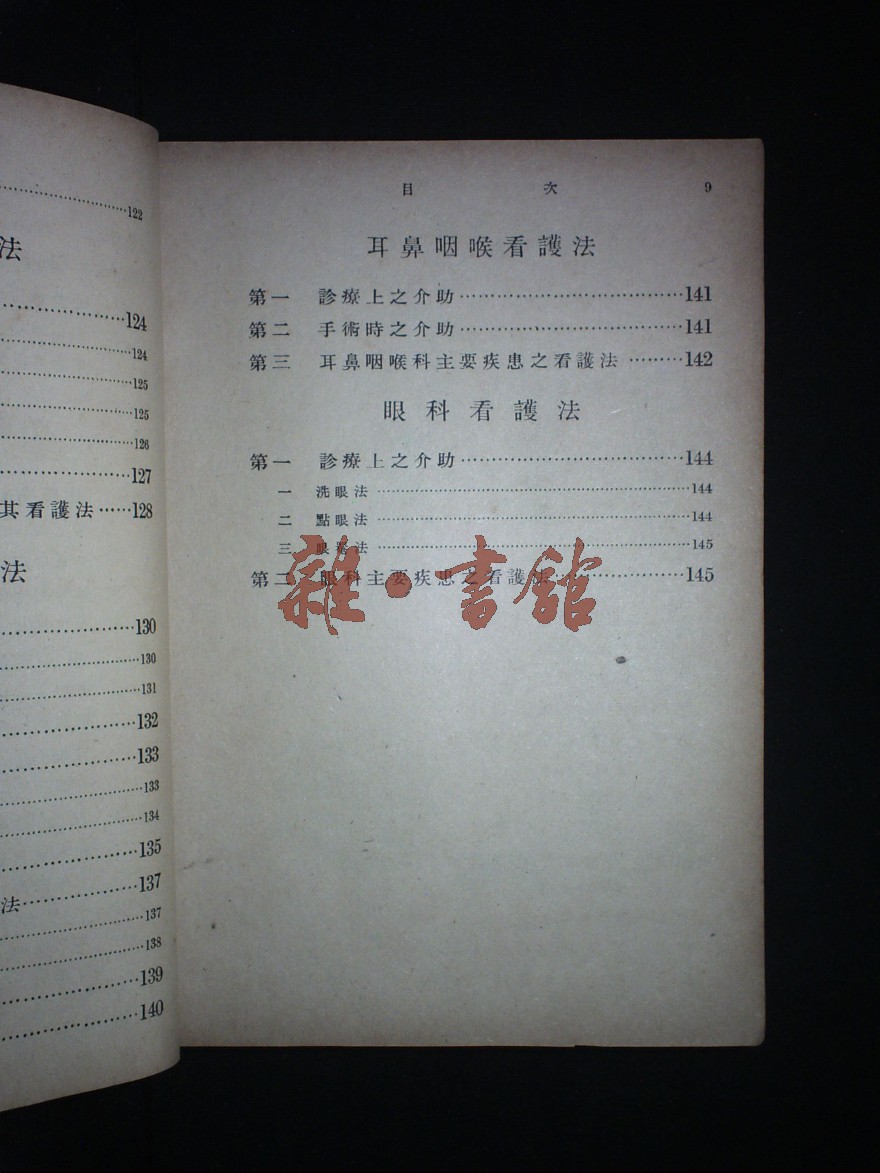 122
法
124
124
125
125
126
127
其看護法……128
法
130
130
131
132
133
133
134
135
法……137
137
138
139
140
目 次 9
耳鼻咽喉看護法
第一 診療上之介助……141
第二 手術時之介助……141
第三 耳鼻咽喉科主要疾患之看護法……142
眼科看護法
第一 診療上之介助……144
一 洗眼法……144
二 點眼法……144
三 眼罨法……145
第二 眼科主要疾患之看護法……145
雜·書館